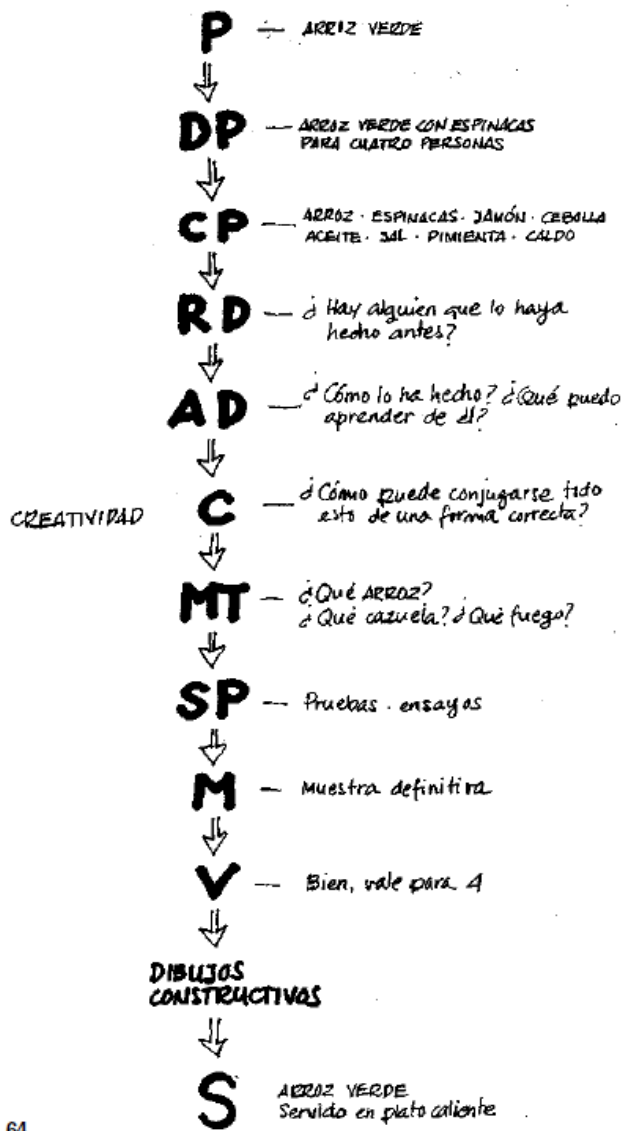 P — ARRIZ VERDE
DP — ARROZ VERDE CON ESPINACAS
PARA CUATRO PERSONAS
CP — ARROZ · ESPINACAS · JAMÓN · CEBOLLA
ACEITE · SAL · PIMIENTA · CALDO
RD — ¿Hay alguien que lo haya
hecho antes?
AD — ¿Cómo lo ha hecho? ¿Qué puedo
aprender de él?
CREATIVIDAD C — ¿Cómo puede conjugarse todo
esto de una forma correcta?
MT — ¿Qué ARROZ?
¿Qué cazuela? ¿Qué fuego?
SP — Pruebas · ensayos
M — Muestra definitiva
V — Bien, vale para 4
DIBUJOS
CONSTRUCTIVOS
S ARROZ VERDE
Servido en plato caliente
64